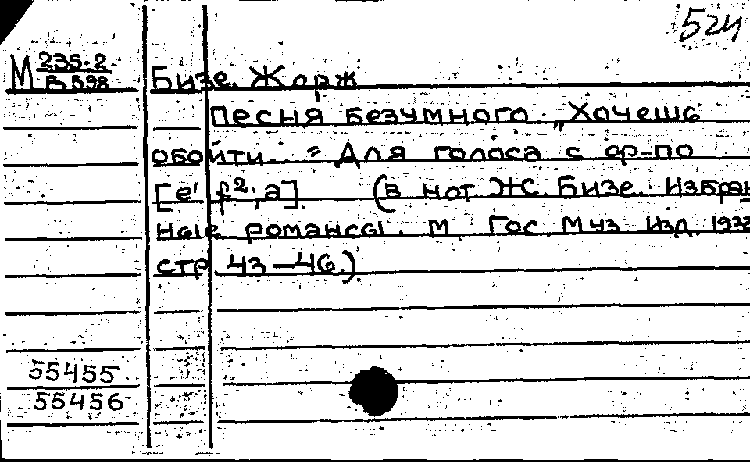 524
М 235-2
В 598
Бизе. Жорж
Песня безумного. „Хочешь
обойти..." Для голоса с ф-но
[e' f²; a]. (в нот Ж. Бизе. Избран
ные романсы. М. Гос. Муз. Изд.
стр 43-46.)
55455
55456